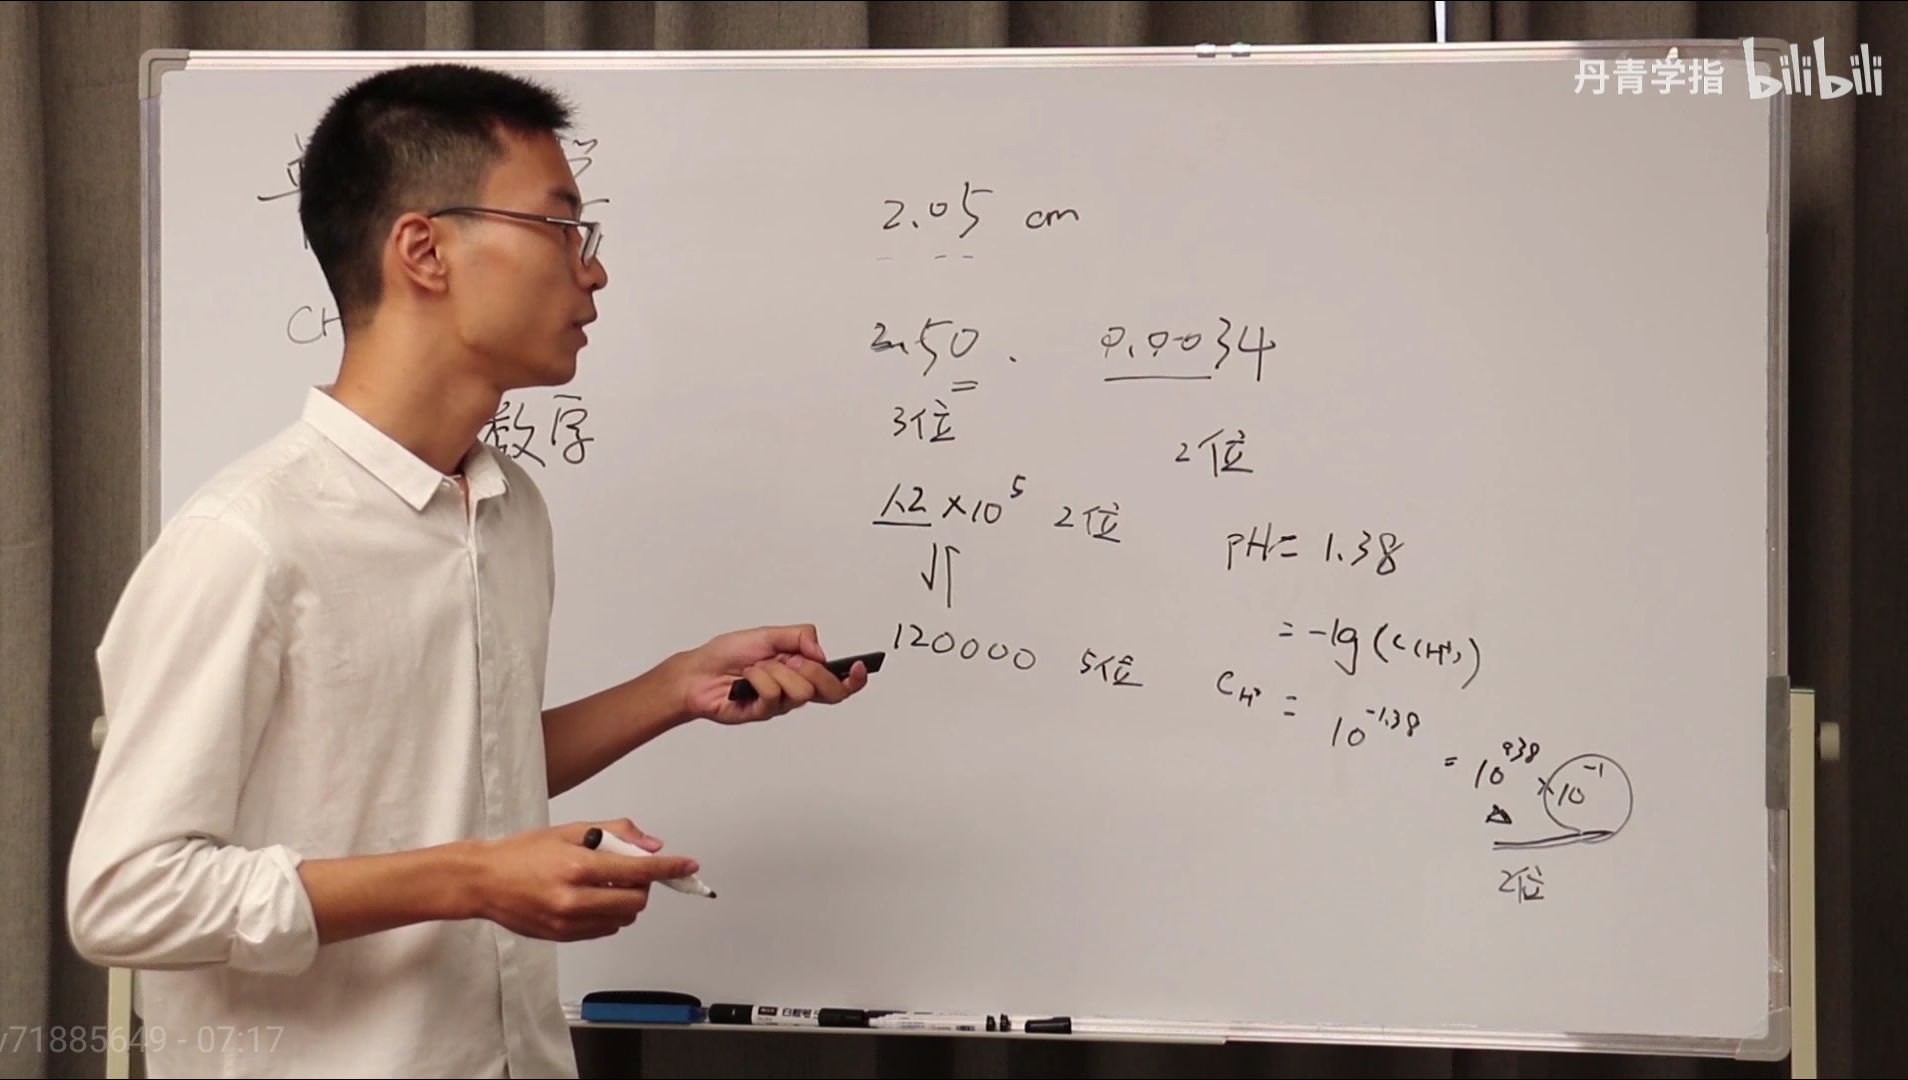 丹青学指 bilibili
2.05 cm
CH
2.50. 0.0034
数字
3位
2位
1.2 × 10⁵ 2位
pH = 1.38
= -lg (C(H⁺))
120000 5位
C H⁺ = 10^-1.38
= 10^0.38 × 10^-1
2位
v71885649 - 07:17